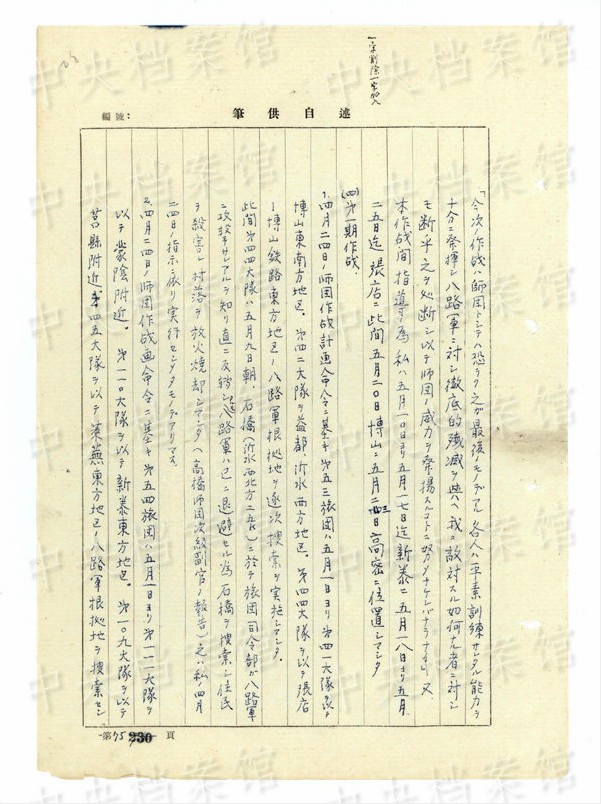 一字削除一字加入
編號:
筆供自述
「今次ノ作戦ハ師団トシテハ恐ラク之が最後ノモノデアル 各人ハ平素訓練サレタル能力ヲ
十分ニ発揮シ八路軍ニ対シ徹底的殲滅ヲ与ヘ我ニ敵対スル如何ナル者ニ対シ
モ断乎之ヲ処断シ以テ師団ノ威力ヲ発揚スルコトニ努メナケレバナラナイ」又
本作戦間指導ノ為私ハ五月一〇日ヨリ五月一七日迄新泰ニ五月一八日ヨリ五月
二五日迄張店ニ此間五月二〇日博山ニ五月二三日高密ニ位置シマシタ
(四)第一期作戦.
1.四月二四日ノ師団作戦計画命令ニ基キ第五三旅団ハ五月一日ヨリ第四一大隊ヲ以テ
博山東南方地区、第四二大隊ヲ益都沂水西方地区、第四四大隊ヲ以テ張店
ー博山鉄路東方地区ノ八路軍根拠地ヲ逐次捜索ヲ実施シマシタ。
此間第四四大隊ハ五月九日朝、石橋(沂水西北方二五粁)ニ於テ旅団司令部が八路軍
ニ攻撃サレアルヲ知リ直ニ反転シ八路軍ハ已ニ退避セル為石橋ヲ捜索シ住民
ヲ殺害シ村落ヲ放火焼却シマシタ(高橋師団次級副官ノ報告)之ハ私ノ四月
二四日ノ指示ニ依リ実行センタモノデアリマス
2.四月二四日ノ師団作戦計画命令ニ基キ第五四旅団ハ五月一日ヨリ第一一一大隊ヲ
以テ蒙陰附近。第一一〇大隊ヲ以テ新泰東方地区。第一〇九大隊ヲ以テ
莒縣附近、第四五大隊ヲ以テ莱蕪東方地区ノ八路軍根拠地ヲ捜索セシ
第75 230 頁
中央档案馆